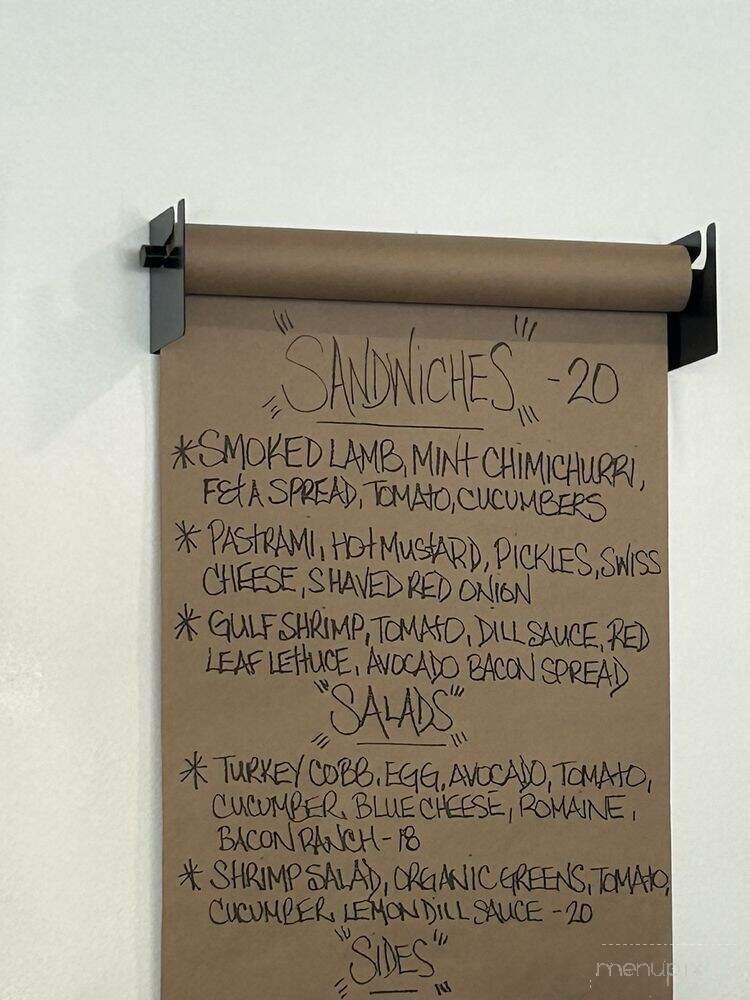 "SANDWICHES" - 20
*SMOKED LAMB, MINT CHIMICHURRI,
FETA SPREAD, TOMATO, CUCUMBERS
* PASTRAMI, HOT MUSTARD, PICKLES, SWISS
CHEESE, SHAVED RED ONION
* GULF SHRIMP, TOMATO, DILL SAUCE, RED
LEAF LETTUCE, AVOCADO BACON SPREAD
"SALADS"
* TURKEY COBB, EGG, AVOCADO, TOMATO,
CUCUMBER, BLUE CHEESE, ROMAINE,
BACON RANCH - 18
* SHRIMP SALAD, ORGANIC GREENS, TOMATO,
CUCUMBER, LEMON DILL SAUCE - 20
"SIDES"